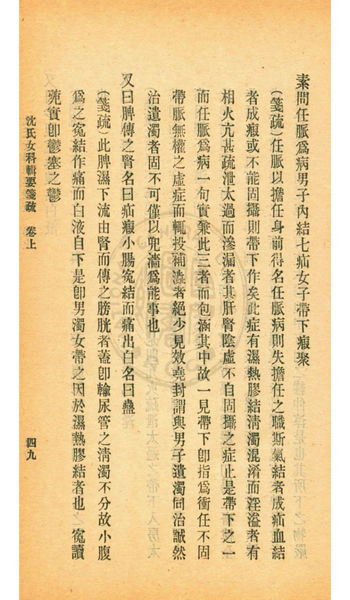 素問任脈爲病男子內結七疝女子帶下瘕聚
（箋疏）任脈以擔任身前得名任脈病則失擔任之職斯氣結者成疝血結
者成瘕或不能固攝則帶下作矣此症有濕熱膠結淸濁混淆而淫溢者有
相火亢甚疏泄太過而滲漏者其肝腎陰虛不自固攝之症止是帶下之一
而任脈爲病一句實兼此三者而包涵其中故一見帶下卽指爲衝任不固
帶脈無權之虛症而輒投補澁者絕少見效堯封謂與男子遺濁同治誠然
治遺濁者固不可僅以兜濇爲能事也
又曰脾傳之腎名曰疝瘕小腸冤結而痛出白名曰蠱
（箋疏）此脾濕下流由腎而傳之膀胱者蓋卽輸尿管之淸濁不分故小腹
爲之冤結作痛而白液自下是卽男濁女帶之因於濕熱膠結者也　冤讀
宛實卽鬱塞之鬱
沈氏女科輯要箋疏　卷上
四九